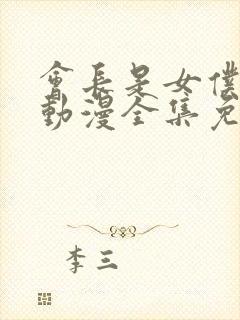 會長是女僕
動漫全集免
李三